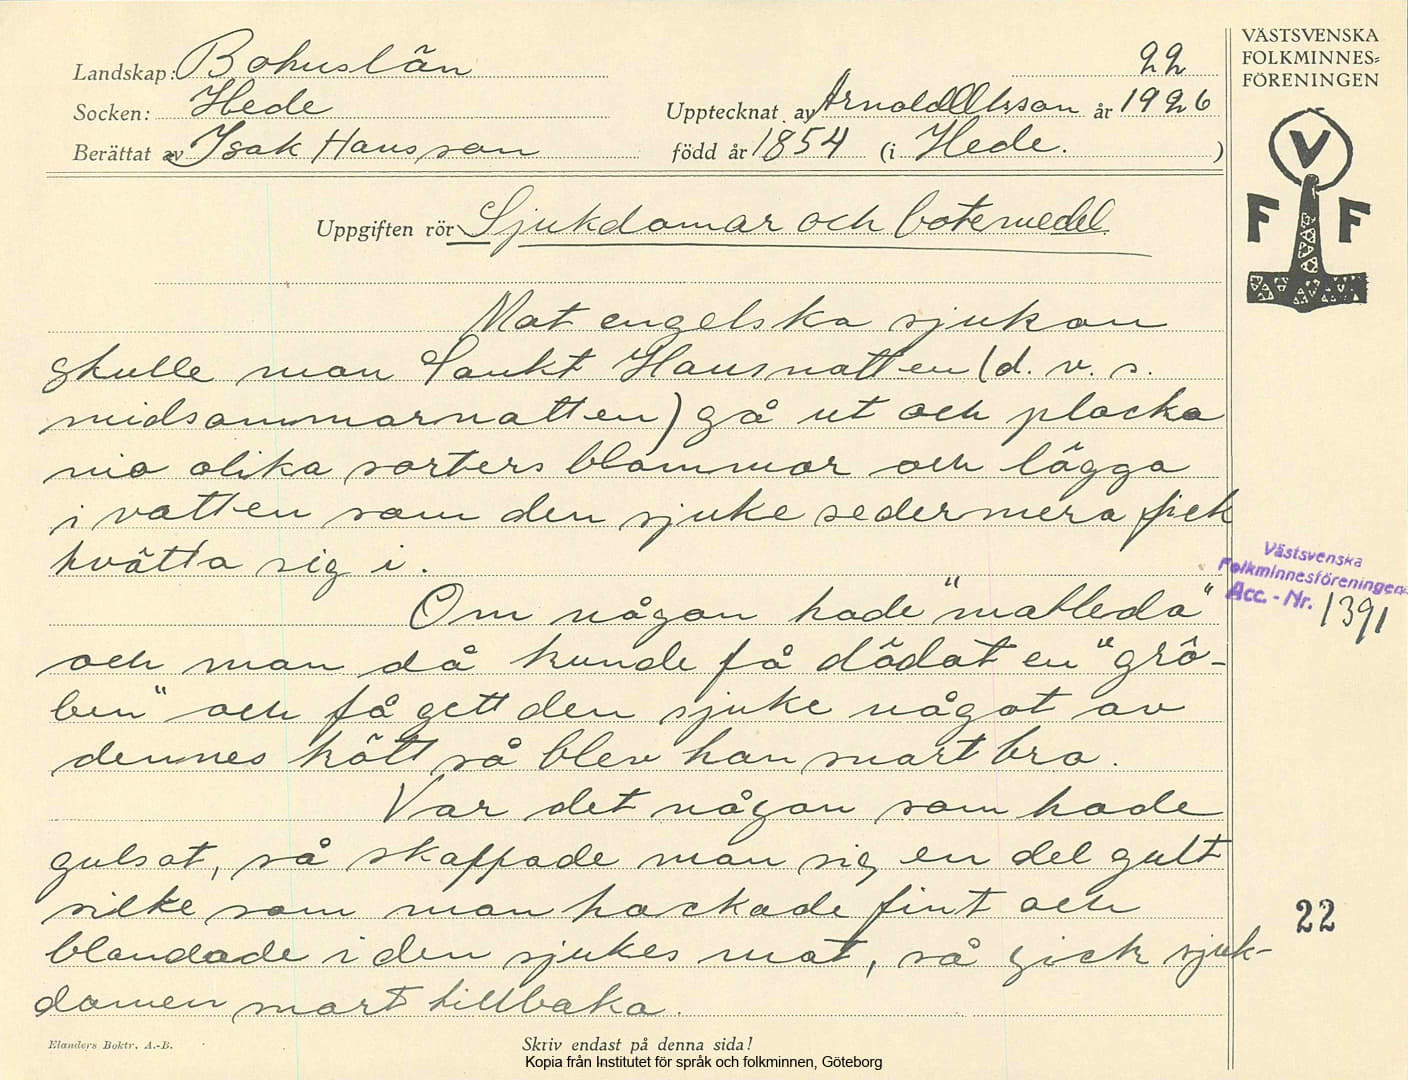 Landskap: Bohuslän
22
Socken: Hede
Upptecknat av Arnold Olsson år 1926
Berättat av Isak Hansson
född år 1854 (i Hede.)
Uppgiften rör Sjukdomar och botemedel.
Mot engelska sjukan
skulle man Sankt Hansnatten (d. v. s.
midsommarnatten) gå ut och plocka
nio olika sorters blommor och lägga
i vatten som den sjuke sedermera fick
tvätta sig i.
Om någon hade "matleda"
och man då kunde få dödat en "grö-
ben" och få gett den sjuke något av
dennes kött så blev han snart bra.
Var det någon som hade
gulsot, så skaffade man sig en del gult
silke som man hackade fint och
blandade i den sjukes mat, så gick sjuk-
domen snart tillbaka.
Elanders Boktr. A.-B.
Skriv endast på denna sida!
Kopia från Institutet för språk och folkminnen, Göteborg
VÄSTSVENSKA
FOLKMINNES=
FÖRENINGEN
V
F F
Västsvenska
Folkminnesföreningen
Acc. - Nr. 1391
22